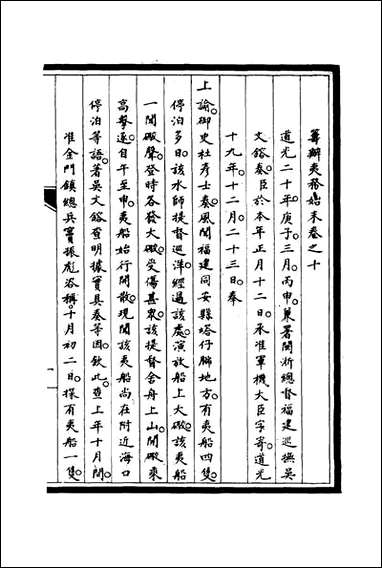 籌辦夷務始末卷之十
道光二十年庚子三月丙申。兼署閩浙總督福建巡撫吳
文鎔奏臣於本年正月十二日。承准軍機大臣字寄道光
十九年十二月二十三日奉
上諭。御史杜彥士奏風聞福建同安縣塔仔腳地方。有夷船四隻。
停泊多日。該水師提督巡洋經過該處。演放船上大礮。該夷船
一聞礮聲。登時各發大礮。受傷甚眾。該提督舍舟上山。開礮來
高擊。逐自午至申。夷船始行開散。現聞該夷船尚在附近海口
停泊等語。著吳文鎔查明據實具奏等因。欽此。查上年十月間。
准金門鎮總兵竇振彪咨稱。十月初二日。探有夷船一隻。